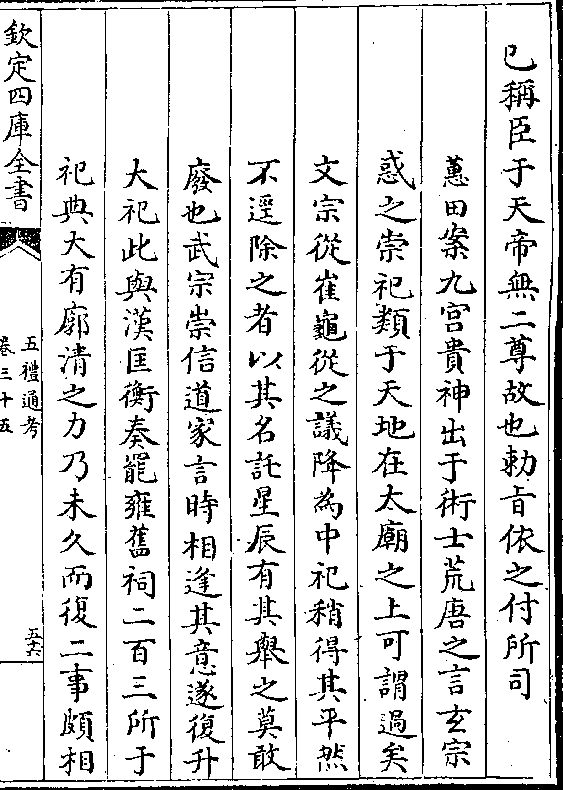 已稱臣于天帝無二尊故也勅旨依之付所司
蕙田案九宫貴神出于術士荒唐之言玄宗
惑之崇祀類于天地在太廟之上可謂過矣
文宗從崔龜從之議降為中祀稍得其平然
不逕除之者以其名託星辰有其舉之莫敢
廢也武宗崇信道家言時相逢其意遂復升
大祀此與漢匡衡奏罷雍舊祠二百三所于
祀典大有廓清之力乃未久而復二事頗相
欽定四庫全書
五禮通考
卷三十五
五六